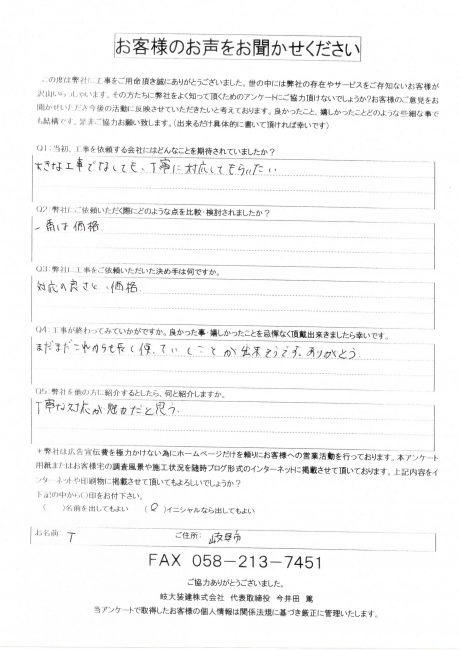 お客様のお声をお聞かせください
この度は弊社に工事をご用命頂き誠にありがとうございました。世の中には弊社の存在やサービスをご存知ないお客様が
沢山いらっしゃいます。その方たちに弊社をよく知って頂くためのアンケートにご協力頂けないでしょうか?お客様のご意見をお
聞かせいただき今後の活動に反映させていただきたいと考えております。良かったこと、嬉しかったことどのような些細な事で
も結構です。是非ご協力お願い致します。(出来るだけ具体的に書いて頂ければ幸いです)
Q1:当初、工事を依頼する会社にはどんなことを期待されていましたか?
大きな工事でなしても、丁寧に対応してもらいたい
Q2:弊社にご依頼いただく際にどのような点を比較・検討されましたか?
一番は価格
Q3:弊社に工事をご依頼いただいた決め手は何ですか。
対応の良さと、価格
Q4:工事が終わってみていかがですか。良かった事・嬉しかったことを忌憚なく頂戴出来きましたら幸いです。
まだまだこれからも長く使っていくことが出来そうです。ありがとう
Q5:弊社を他の方に紹介するとしたら、何と紹介しますか。
丁寧な対応が魅力だと思う
*弊社は広告宣伝費を極力かけない為にホームページだけを頼りにお客様への営業活動を行っております。本アンケート
用紙またはお客様宅の調査風景や施工状況を随時ブログ形式のインターネットに掲載させて頂いております。上記内容をイ
ンターネットや印刷物に掲載させて頂いてもよろしいでしょうか?
下記の中から○印をお付下さい。
( )名前を出してもよい (○)イニシャルなら出してもよい
お名前 T ご住所: 岐阜市
FAX 058-213-7451
ご協力ありがとうございました。
岐大装建株式会社 代表取締役 今井田 篤
当アンケートで取得したお客様の個人情報は関係法規に基づき厳正に管理いたします。